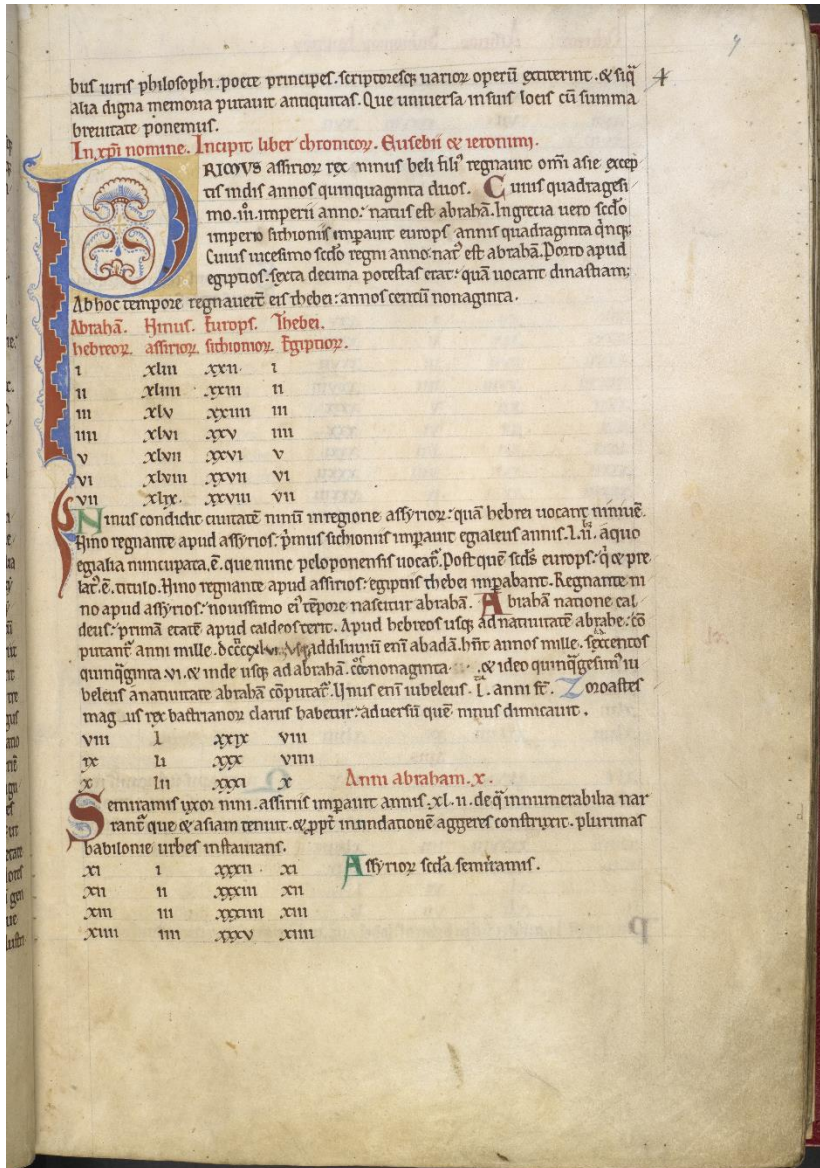 bus uiris philosophi. poete principes. scriptoresq; uarioꝝ operū extiterint. & siq̄
alia digna memoria putauit antiquitas. Que uniuersa in suis locis cū summa
breuitate ponemus.
In xp̄i nomine. Incipit liber chronicoꝝ. Eusebii & ieronimi.
PRIMVS assirioꝝ rex ninus beli filiꝰ regnauit omī asie excep
tis indis annos quinquaginta duos. Cuius quadragesi
mo. iii. imperii anno: natus est abrahā. In grecia uero scd̄o
imperio sichionis imꝑauit europs annis quadraginta q̇nq;
Cuius uicesimo scd̄o regni anno. natꝰ est abrahā. Porro apud
egiptios. sexta decima potestas erat: quā uocant dinastiam;
Ab hoc tempore regnauert̄ eis thebei: annos centū nonaginta.
Abrahā. Ninus. Europs. Thebei.
hebreoꝝ. assirioꝝ sichionioꝝ. Egiptioꝝ.
i xliii xxii. i
ii xliiii xxiii ii
iii xlv xxiiii iii
iiii xlvi xxv iiii
v xlvii xxvi v
vi xlviii xxvii vi
vii xlix. xxviii vii
Ninus condidit ciuitatē ninū in regione assyrioꝝ: quā hebrei uocant niniuē.
Nino regnante apud assyrios: p̄mus sichionis imꝑauit egialeus annis. l. ii. a quo
egialia nuncupata. ē. que nunc peloponensis uocat᷑. Post quē scd̄s europs: q̇ & pre
lat᷑. ē. titulo. Nino regnante apud assirios: egiptiis thebei imꝑabant. Regnante ni
no apud assyrios: nouissimo eiꝰ tēpore nascitur abrahā. Abrahā natione cal
deus: primā etatē apud caldeos terit. Apud hebreos usq; ad natiuitatē abrahe: cō
putant᷑ anni mille. Vsq; ad diluuiū enī ab adā. hn̄t annos mille. sexcentos
quinq̄ginta. vi. & inde usq; ad abrahā. nonaginta & ideo quinq̄gesimꝰ iu
beleus a natiuitate abrahā cōputat᷑. Unus enī iubeleus. l. anni st̄. Zoroastes
mag us rex bactrianoꝝ clarus habetur: aduersū quē ninus dimicauit.
viii l xxix viii
ix li xxx viiii
x lii xxxi x Anni abraham. x.
Semiramis uxor nini. assiriis imꝑauit annis. xl. ii. de q̄ innumerabilia nar
rant᷑ que & asiam tenuit. & ꝓpt̄ inundationē aggeres construxit. plurimas
babilonie urbes instaurans.
xi i xxxii. xi Assyrioꝝ scd̄a semiramis.
xii ii xxxiii xii
xiii iii xxxiiii xiii
xiiii iiii xxxv xiiii